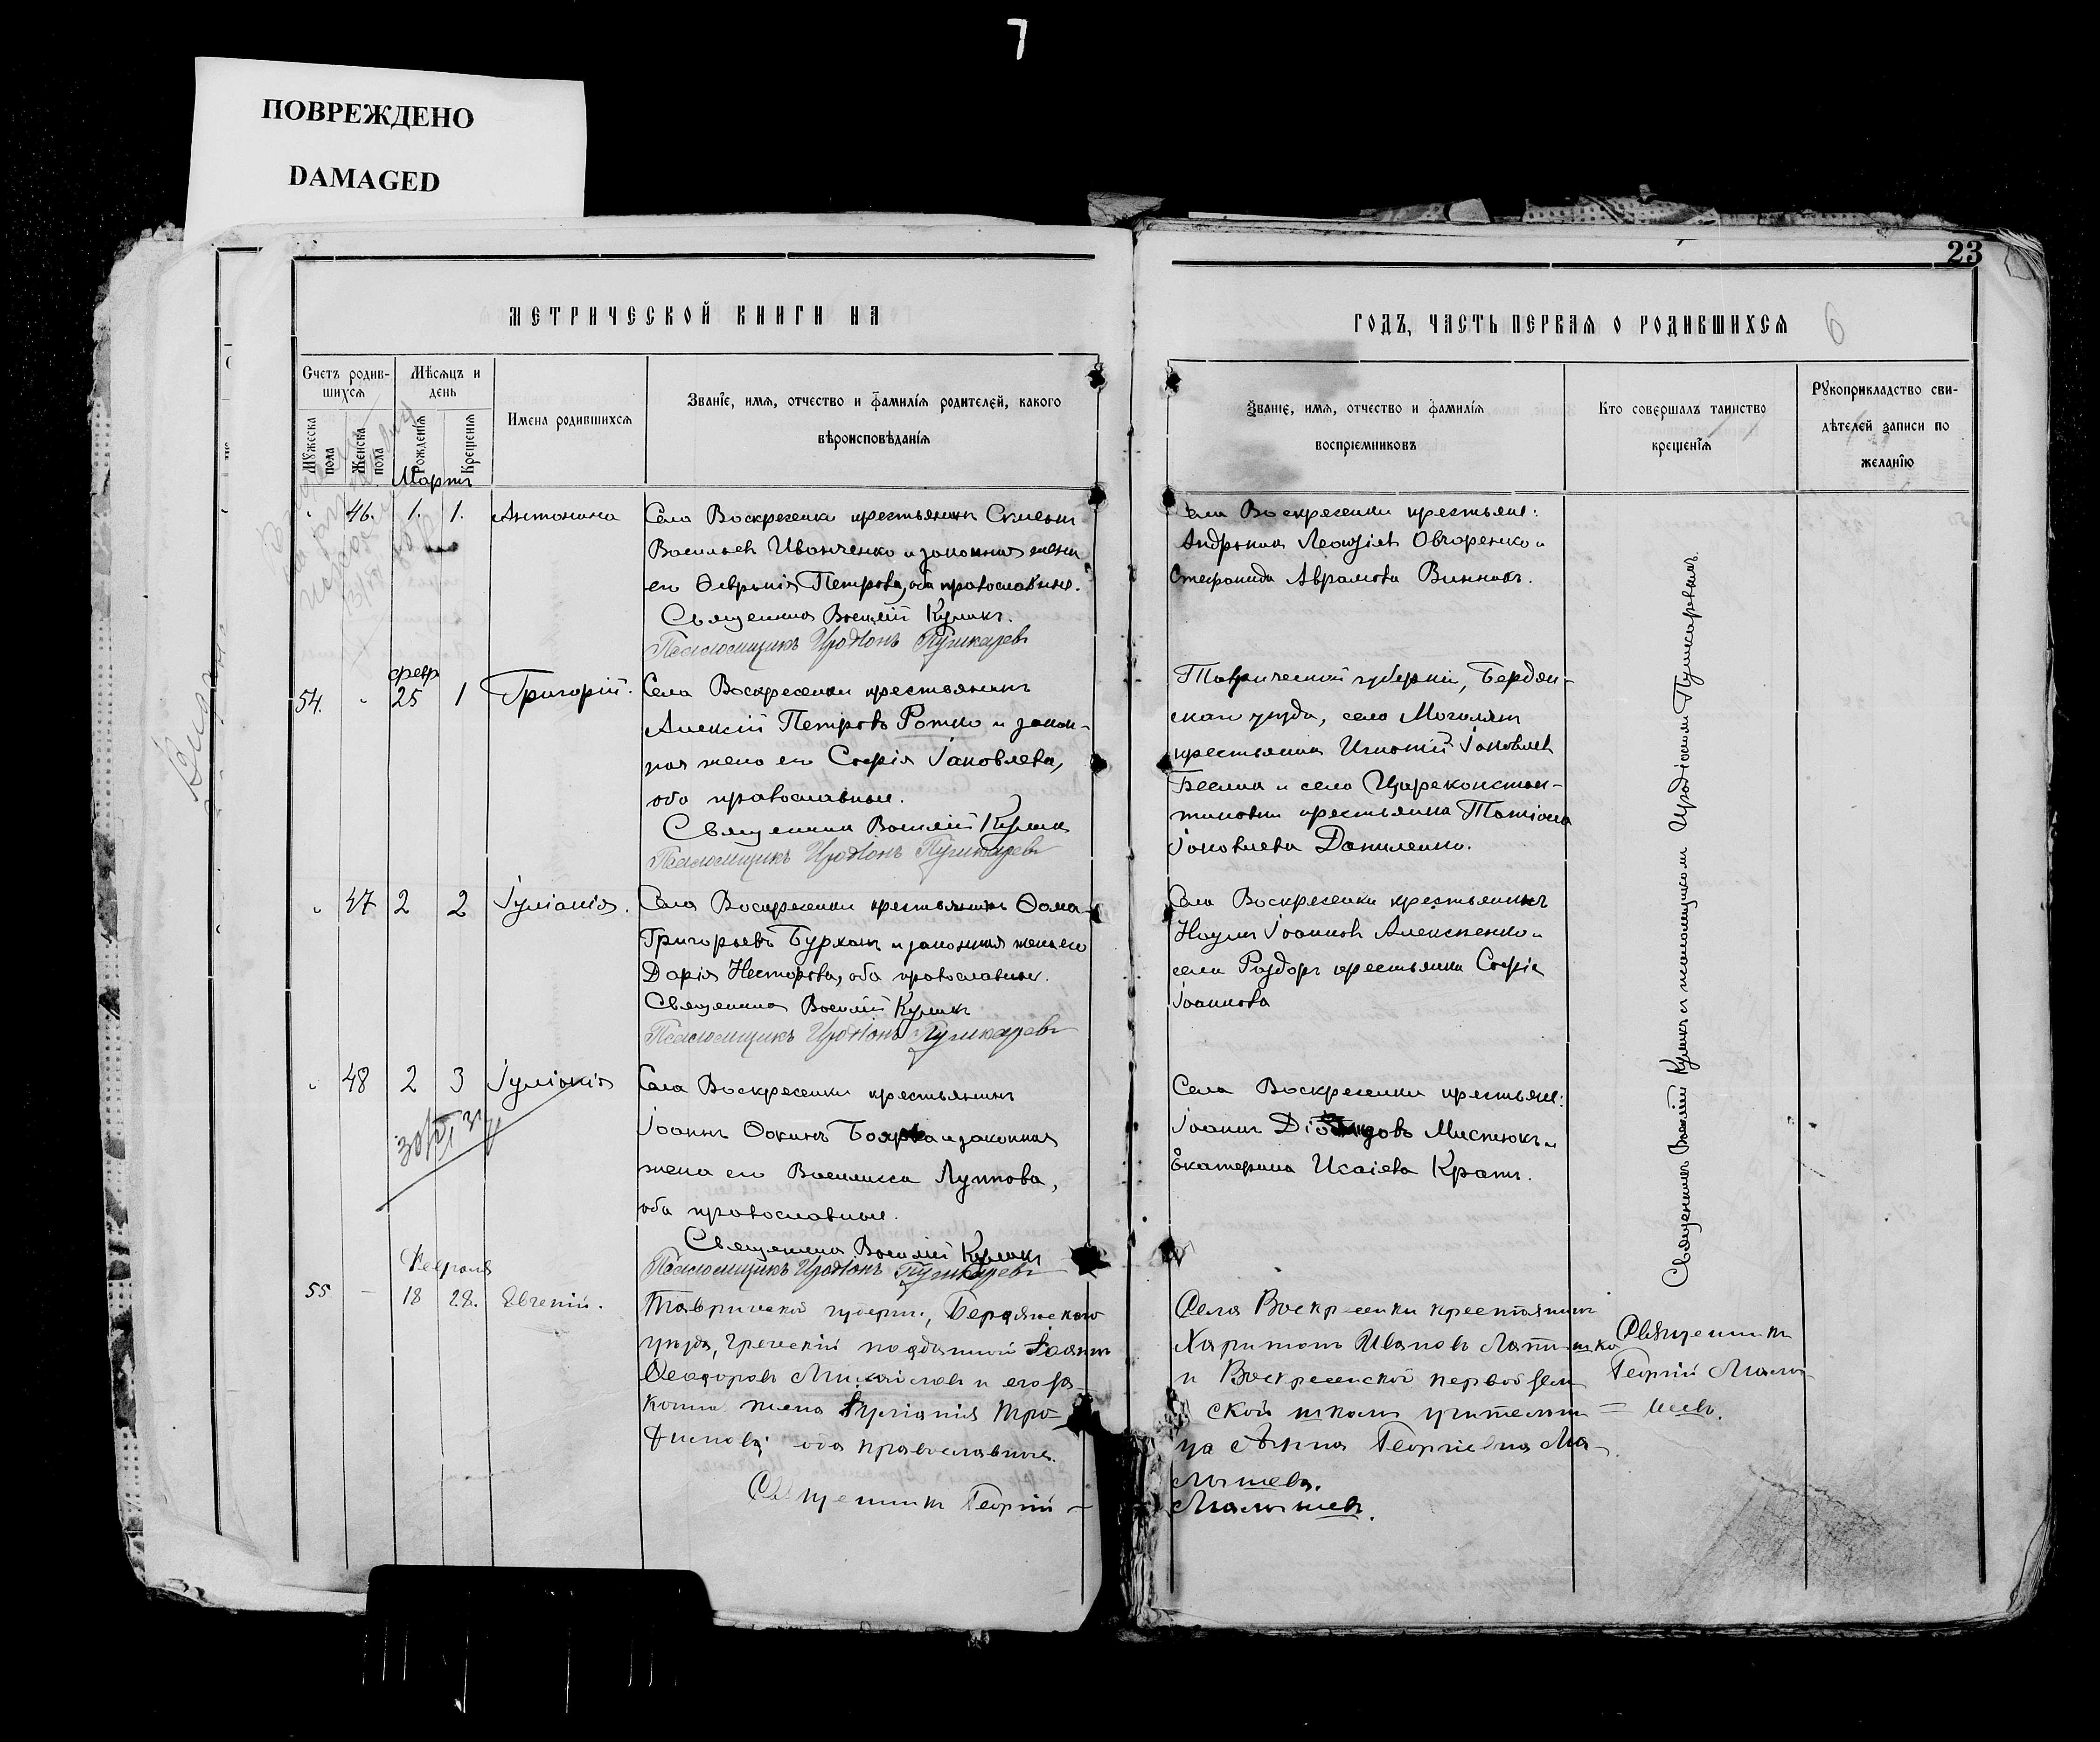 7
ПОВРЕЖДЕНО
DAMAGED
23
МЕТРИЧЕСКОЙ КНИГИ НА
ГОДЪ, ЧАСТЬ ПЕРВАЯ О РОДИВШИХСЯ
6
Счетъ родив-
шихся
Мужеска пола
Женска пола
Мѣсяцъ и
день
Рожденія
Крещенія
Имена родившихся
Званіе, имя, отчество и фамилія родителей, какого
вѣроисповѣданія
Званіе, имя, отчество и фамилія
воспріемниковъ
Кто совершалъ таинство
крещенія
Рукоприкладство сви-
дѣтелей записи по
желанію
Мартъ
46. 1. 1. Антонина
Села Воскресенки крестьянинъ Симеонъ
Васильевъ Иванченко и законная жена
его Ѳевронія Петрова, оба православные.
Священникъ Василій Куликъ.
Псаломщикъ Иродіонъ Пушкаревъ
Села Воскресенки крестьяне:
Андроникъ Леонтіевъ Овчаренко и
Стефанида Аврамова Винникъ.
февр
54. 25 1 Григорій.
Села Воскресенки крестьянинъ
Алексій Петровъ Ротко и закон-
ная жена его Софія Іаковлева,
оба православные.
Священникъ Василій Куликъ
Псаломщикъ Иродіонъ Пушкаревъ
Таврической губерніи, Бердян-
скаго уѣзда, села
крестьянинъ Игнатій Іаковлевъ
и села Цареконстан-
тиновки крестьянка Татіана
Іаковлева Даниленко.
47 2 2 Іуліанія.
Села Воскресенки крестьянинъ Ѳома
Григорьевъ Бурханъ и законная жена его
Дарія Несторова, оба православные.
Священникъ Василій Куликъ
Псаломщикъ Иродіонъ Пушкаревъ
Села Воскресенки крестьянинъ
Наумъ Іоанновъ Алексѣенко и
села Роздоръ крестьянка Софія
Іоаннова
48 2 3 Іуліанія
Села Воскресенки крестьянинъ
Іоаннъ Ѳокинъ и законная
жена его Василисса Луппова,
оба православные.
Священникъ Василій Куликъ
Псаломщикъ Иродіонъ Пушкаревъ
Села Воскресенки крестьяне:
Іоаннъ Мистюкъ и
Екатерина Исаіева Кратъ.
Священникъ Василій Куликъ съ псаломщикомъ Иродіономъ Пушкаревымъ.
Февраля
55 – 18 28. Евгеній.
Таврической губерніи, Бердянскаго
уѣзда, греческій подданный Іоаннъ
Ѳеодоровъ Михайловъ и его за-
конная жена Іуліанія Тро-
фимова, оба православные.
Священникъ Георгій
Села Воскресенки крестьянинъ
Харитонъ Ивановъ
и Воскресенской первой зем
ской школы учительни
ца Анна Георгіевна Ма-
лышева.
Малышевъ.
Священникъ
Георгій Малы-
= шевъ.